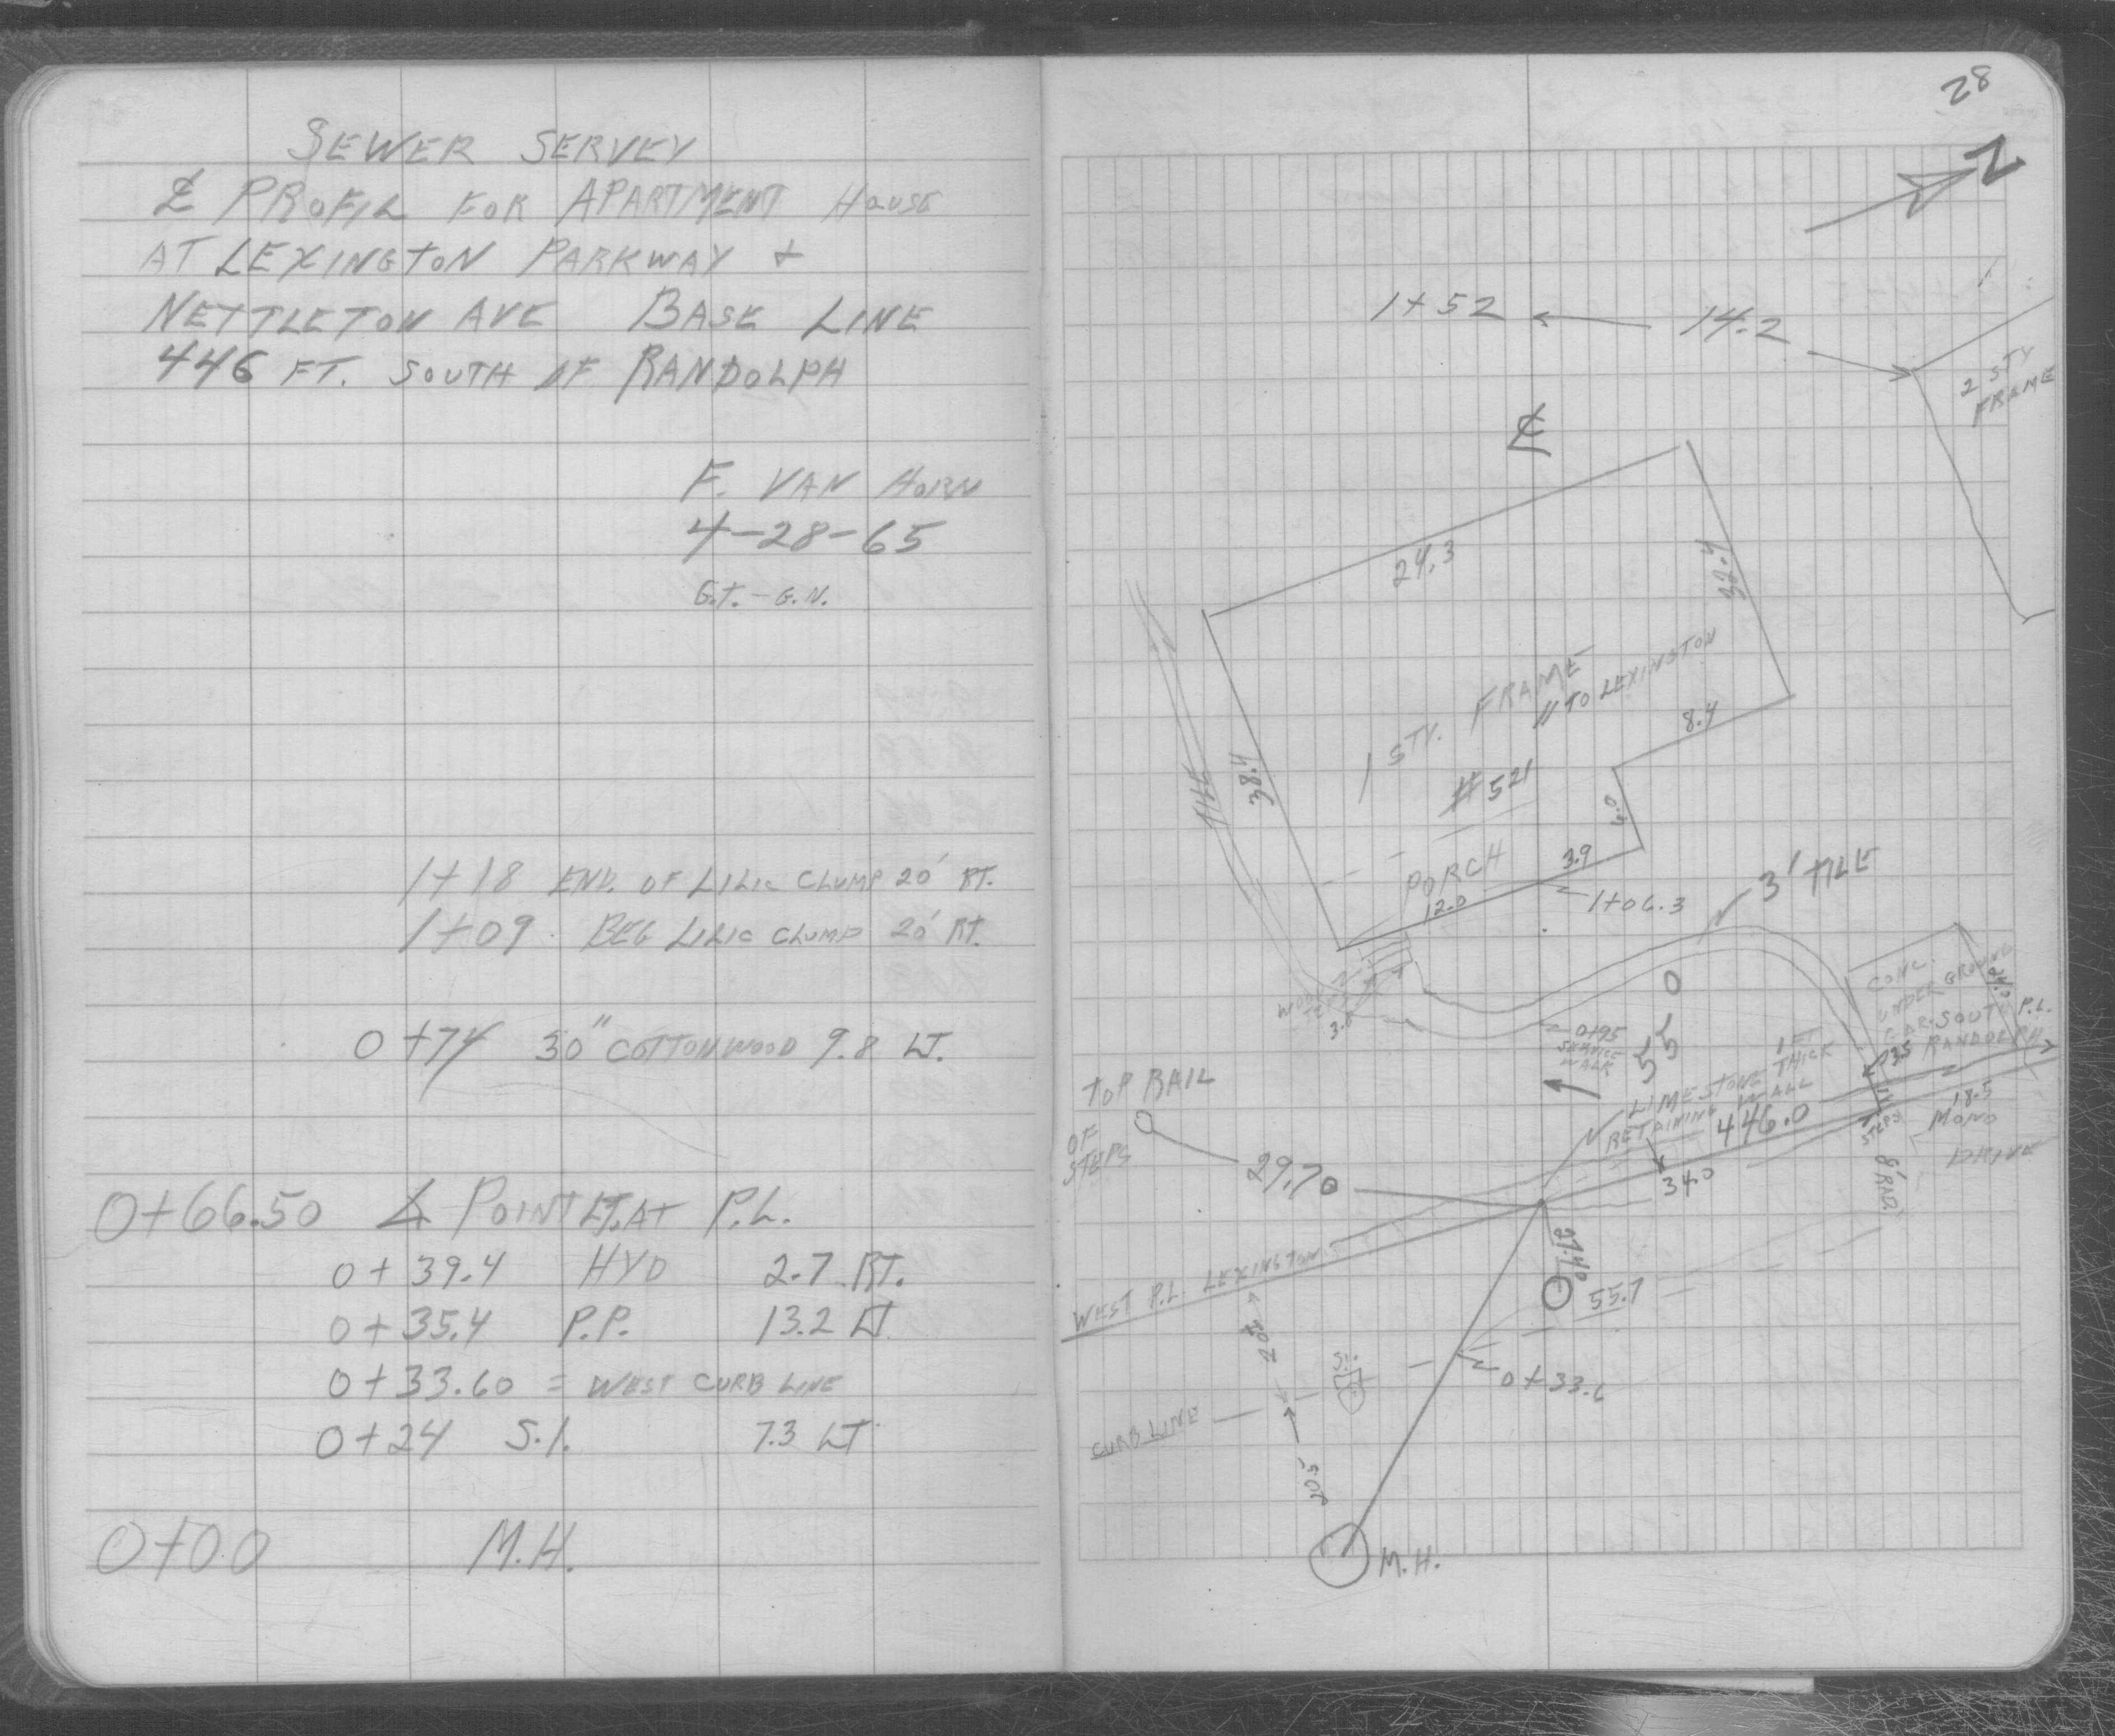 SEWER SERVEY
℄ PROFIL FOR APARTMENT HOUSE
AT LEXINGTON PARKWAY +
NETTLETON AVE BASE LINE
446 FT. SOUTH OF RANDOLPH
F. VAN HORN
4-28-65
G.T. - G.N.
1+18 END. OF LILIC CLUMP 20' RT.
1+09. BEG LILIC CLUMP 20' RT.
0+74 30" COTTONWOOD 9.8 LT.
0+66.50 ∠ POINT LT. AT P.L.
0+39.4 HYD 2.7 RT.
0+35.4 P.P. 13.2 LT
0+33.60 = WEST CURB LINE
0+24 S.I. 7.3 LT
0+00 M.H.
28
N
1+52 14.2
2 STY
FRAME
℄
24.3
32.4
1 STY. FRAME
// TO LEXINGTON
8.4
38.4
TILE
#521
6.0
PORCH
3.9
12.0
1+06.3
3' TILE
CONC.
UNDER GROUND
GAR.
SOUTH P.L.
RANDOLPH
WOOD
STEPS
0+95
SERVICE
WALK
55 0
1 FT
THICK
LIMESTONE
RETAINING WALL
3.5
446.0
STEPS
18.5
MONO
DRIVE
8' RAD.
TOP RAIL
OF
STEPS
29.70
34.0
27.40
WEST P.L. LEXINGTON
55.7
S.I.
0+33.6
CURB LINE
20.5
M.H.